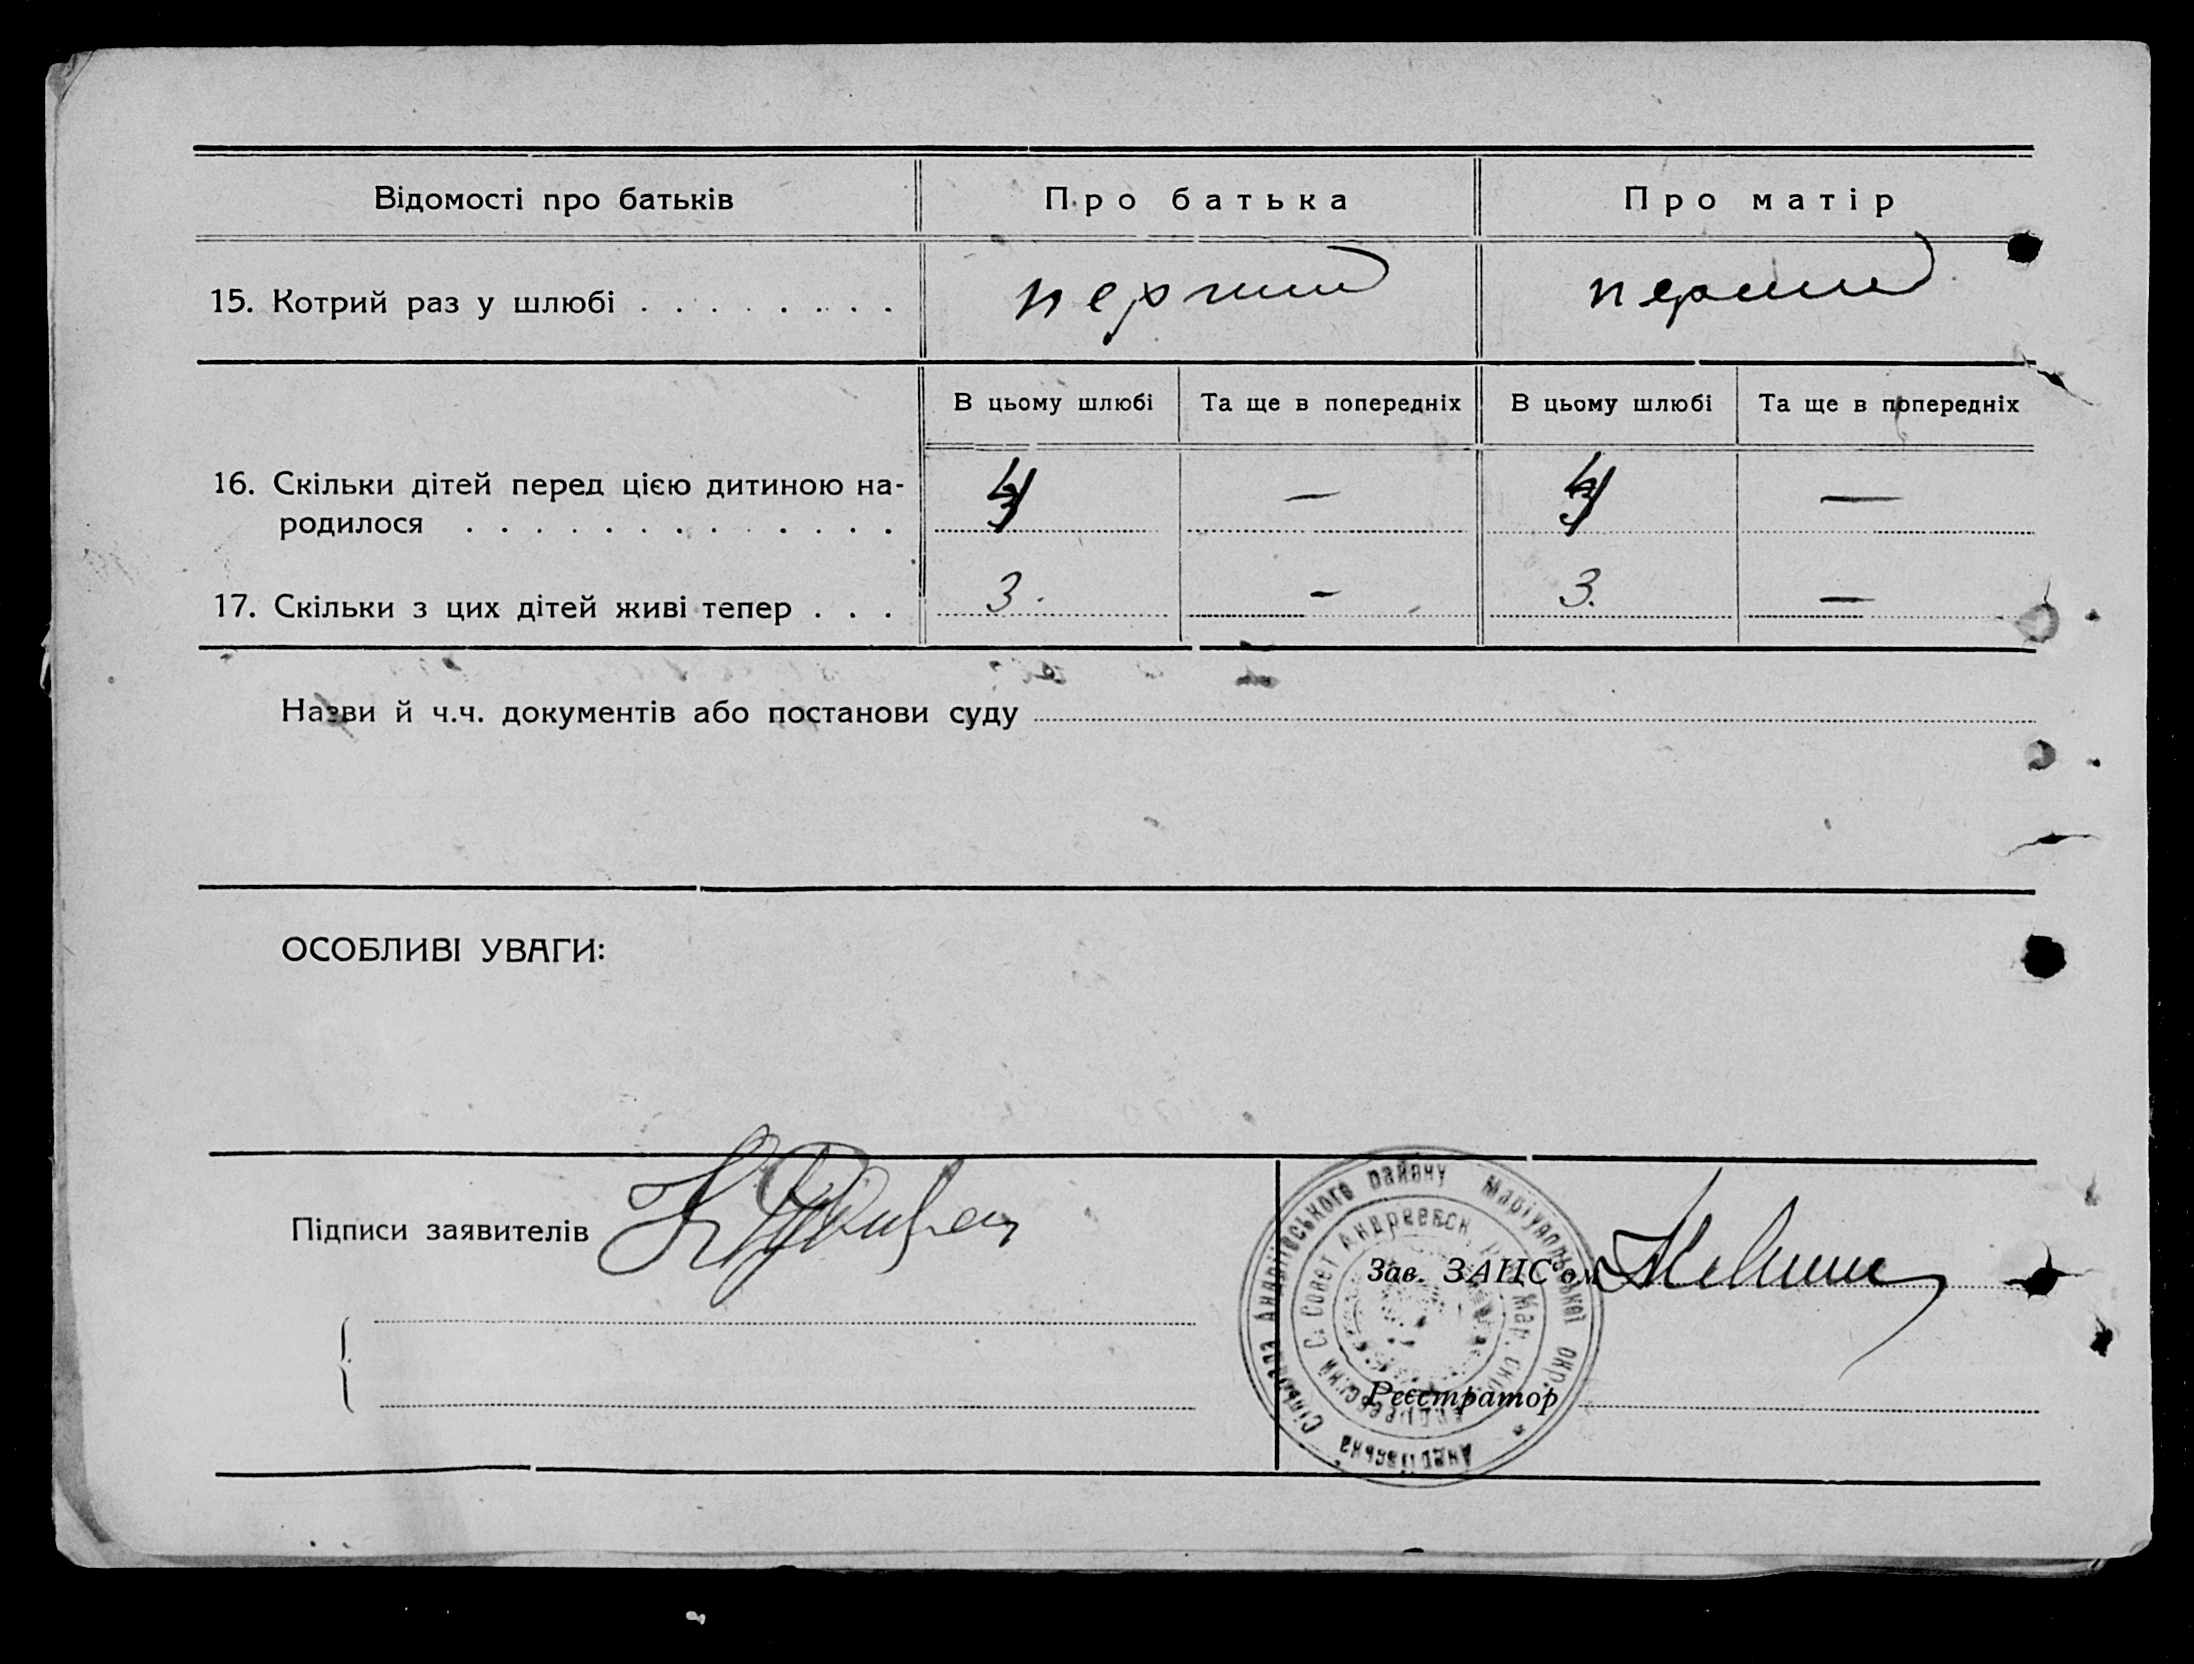 Відомості про батьків
Про батька
Про матір
15. Котрий раз у шлюбі . . . . . . . . .
перший
перший
В цьому шлюбі
Та ще в попередніх
В цьому шлюбі
Та ще в попередніх
16. Скільки дітей перед цією дитиною на-
родилося . . . . . . . . . . . . .
4
—
4
—
17. Скільки з цих дітей живі тепер . . .
3
-
3.
—
Назви й ч.ч. документів або постанови суду
ОСОБЛИВІ УВАГИ:
Підписи заявителів
Зав. ЗАПС'ом
Реєстратор
Андріївська Сільрада Андріївського району Маріупольської окр.
Андреевский С. Совет Андреевск. Мар. окр.